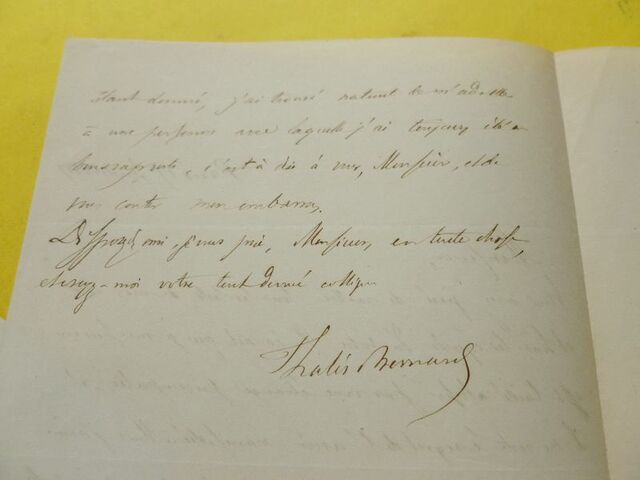 étant donné, j'ai trouvé naturel de m'adresser
à une personne avec laquelle j'ai toujours été en
bons rapports, c'est à dire à vous, Monsieur, et de
vous conter mon embarras.
Disposez de moi, je vous prie, Monsieur, en toute chose,
et croyez-moi votre tout dévoué collègue
Thalès Bernard